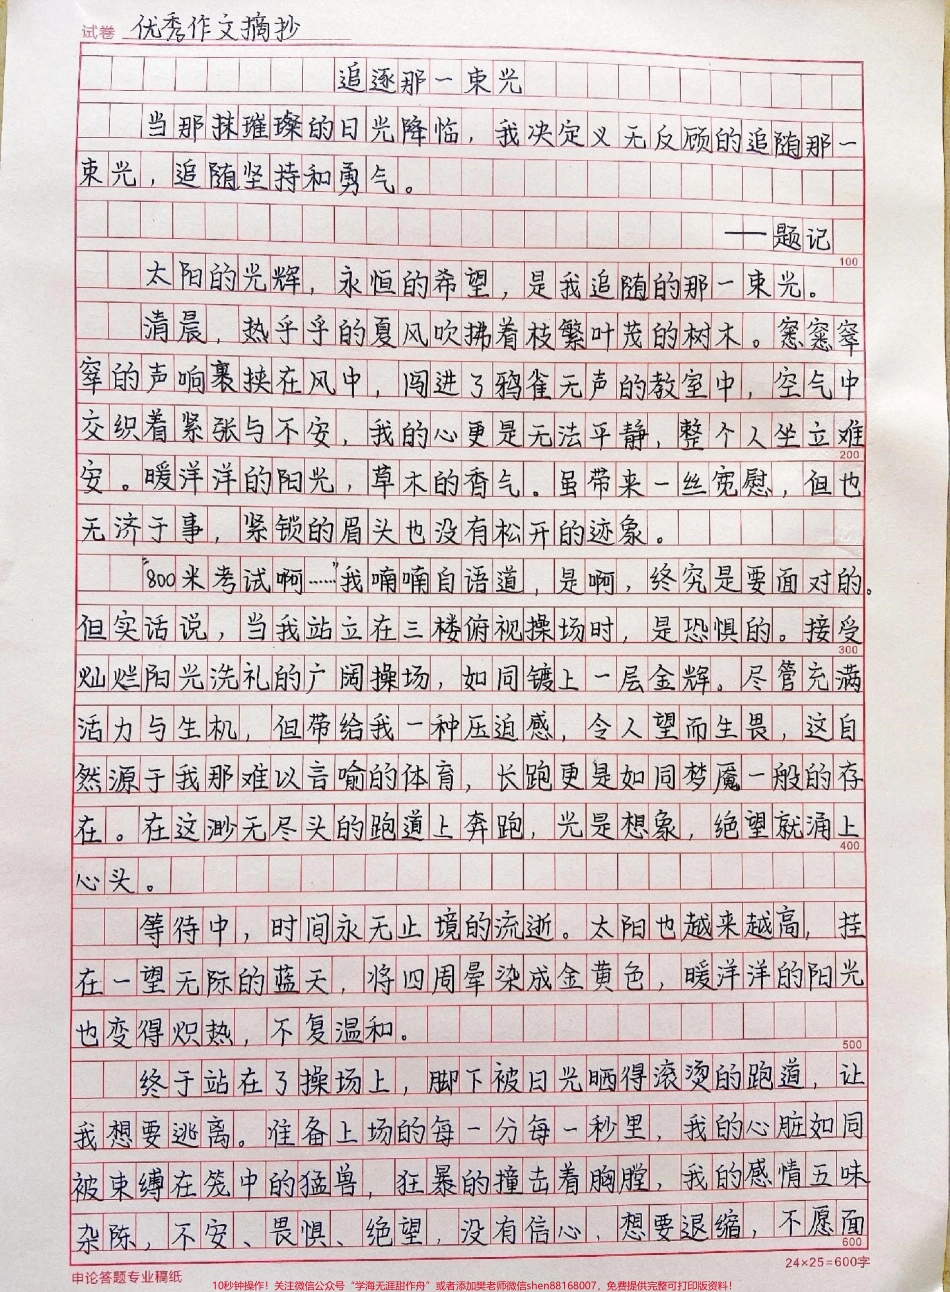 试卷 优秀作文摘抄
追逐那一束光
当那抹璀璨的日光降临，我决定义无反顾的追随那一
束光，追随坚持和勇气。
——题记
100
太阳的光辉，永恒的希望，是我追随的那一束光。
清晨，热乎乎的夏风吹拂着枝繁叶茂的树木。窸窸窣
窣的声响裹挟在风中，闯进了鸦雀无声的教室中，空气中
交织着紧张与不安，我的心更是无法平静，整个人坐立难
200
安。暖洋洋的阳光，草木的香气。虽带来一丝宽慰，但也
无济于事，紧锁的眉头也没有松开的迹象。
“800米考试啊……”我喃喃自语道，是啊，终究是要面对的。
但实话说，当我站立在三楼俯视操场时，是恐惧的。接受
300
灿烂阳光洗礼的广阔操场，如同镀上一层金辉。尽管充满
活力与生机，但带给我一种压迫感，令人望而生畏，这自
然源于我那难以言喻的体育，长跑更是如同梦魇一般的存
在。在这渺无尽头的跑道上奔跑，光是想象，绝望就涌上
400
心头。
等待中，时间永无止境的流逝。太阳也越来越高，挂
在一望无际的蓝天，将四周晕染成金黄色，暖洋洋的阳光
也变得炽热，不复温和。
500
终于站在了操场上，脚下被日光晒得滚烫的跑道，让
我想要逃离。准备上场的每一分每一秒里，我的心脏如同
被束缚在笼中的猛兽，狂暴的撞击着胸膛，我的感情五味
杂陈，不安、畏惧、绝望，没有信心，想要退缩，不愿面
600
申论答题专业稿纸
24×25=600字
10秒钟操作！关注微信公众号“学海无涯甜作舟”或者添加樊老师微信shen88168007，免费提供完整可打印版资料！